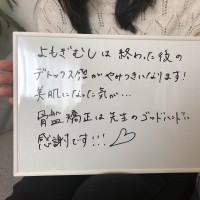 よもぎむしは終わった後の
デトックス感がやみつきになります!
美肌になった気が…
骨盤矯正は先生のゴッドハンドに
感謝です!!!